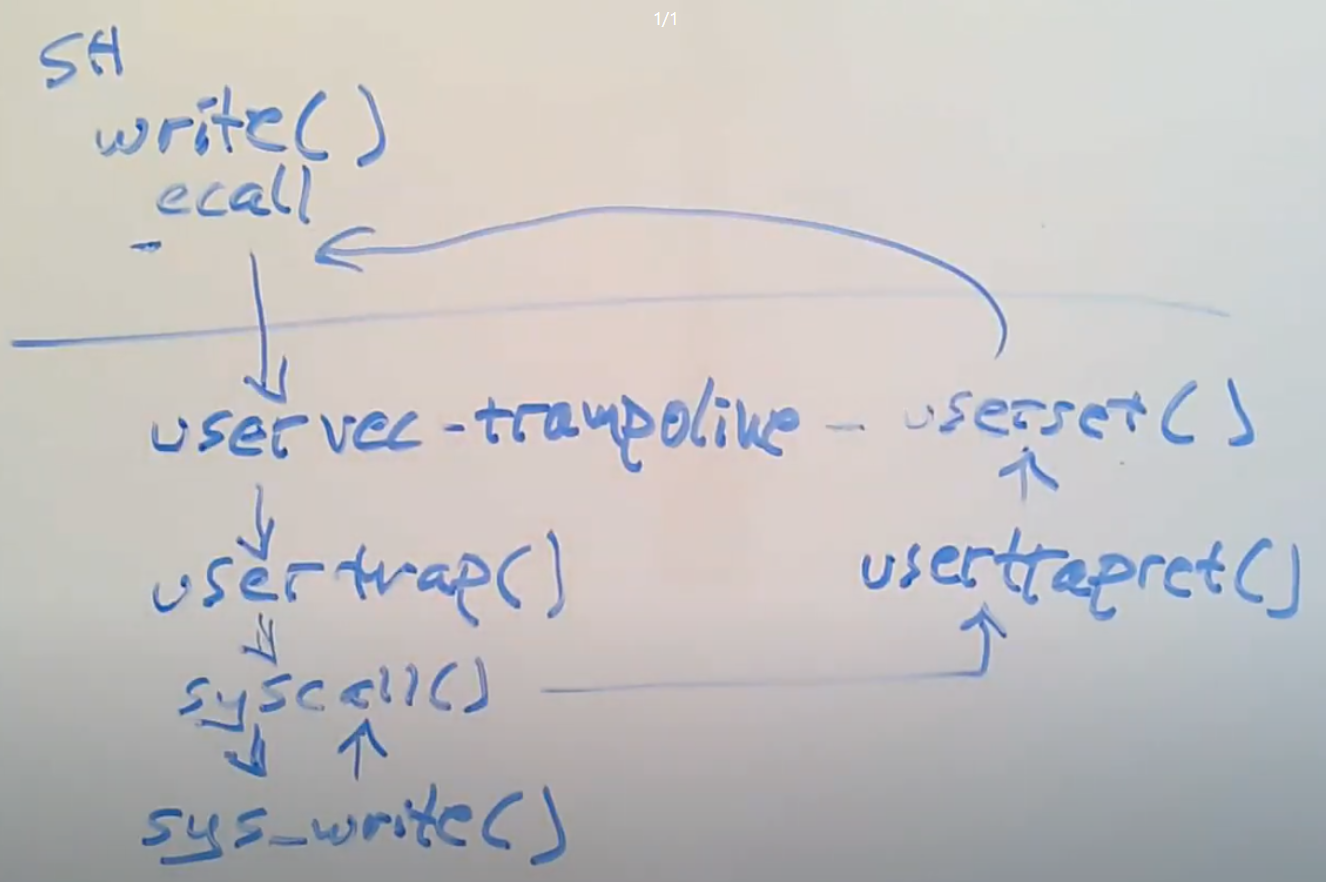 1/1
SH
write()
ecall
uservec - trampoline - userset()
usertrap()
usertrapret()
syscall()
sys_write()